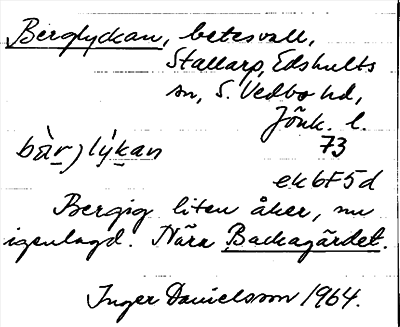 Berglyckan, betesvall,
Stallarp, Edshults
sn, S. Vedbo hd,
Jönk. l.
bàr̲j lýk̲an
73
ek 6F5d
Bergig liten åker, nu
igenlagd. Nära Backagärdet.
Inger Danielsson 1964.